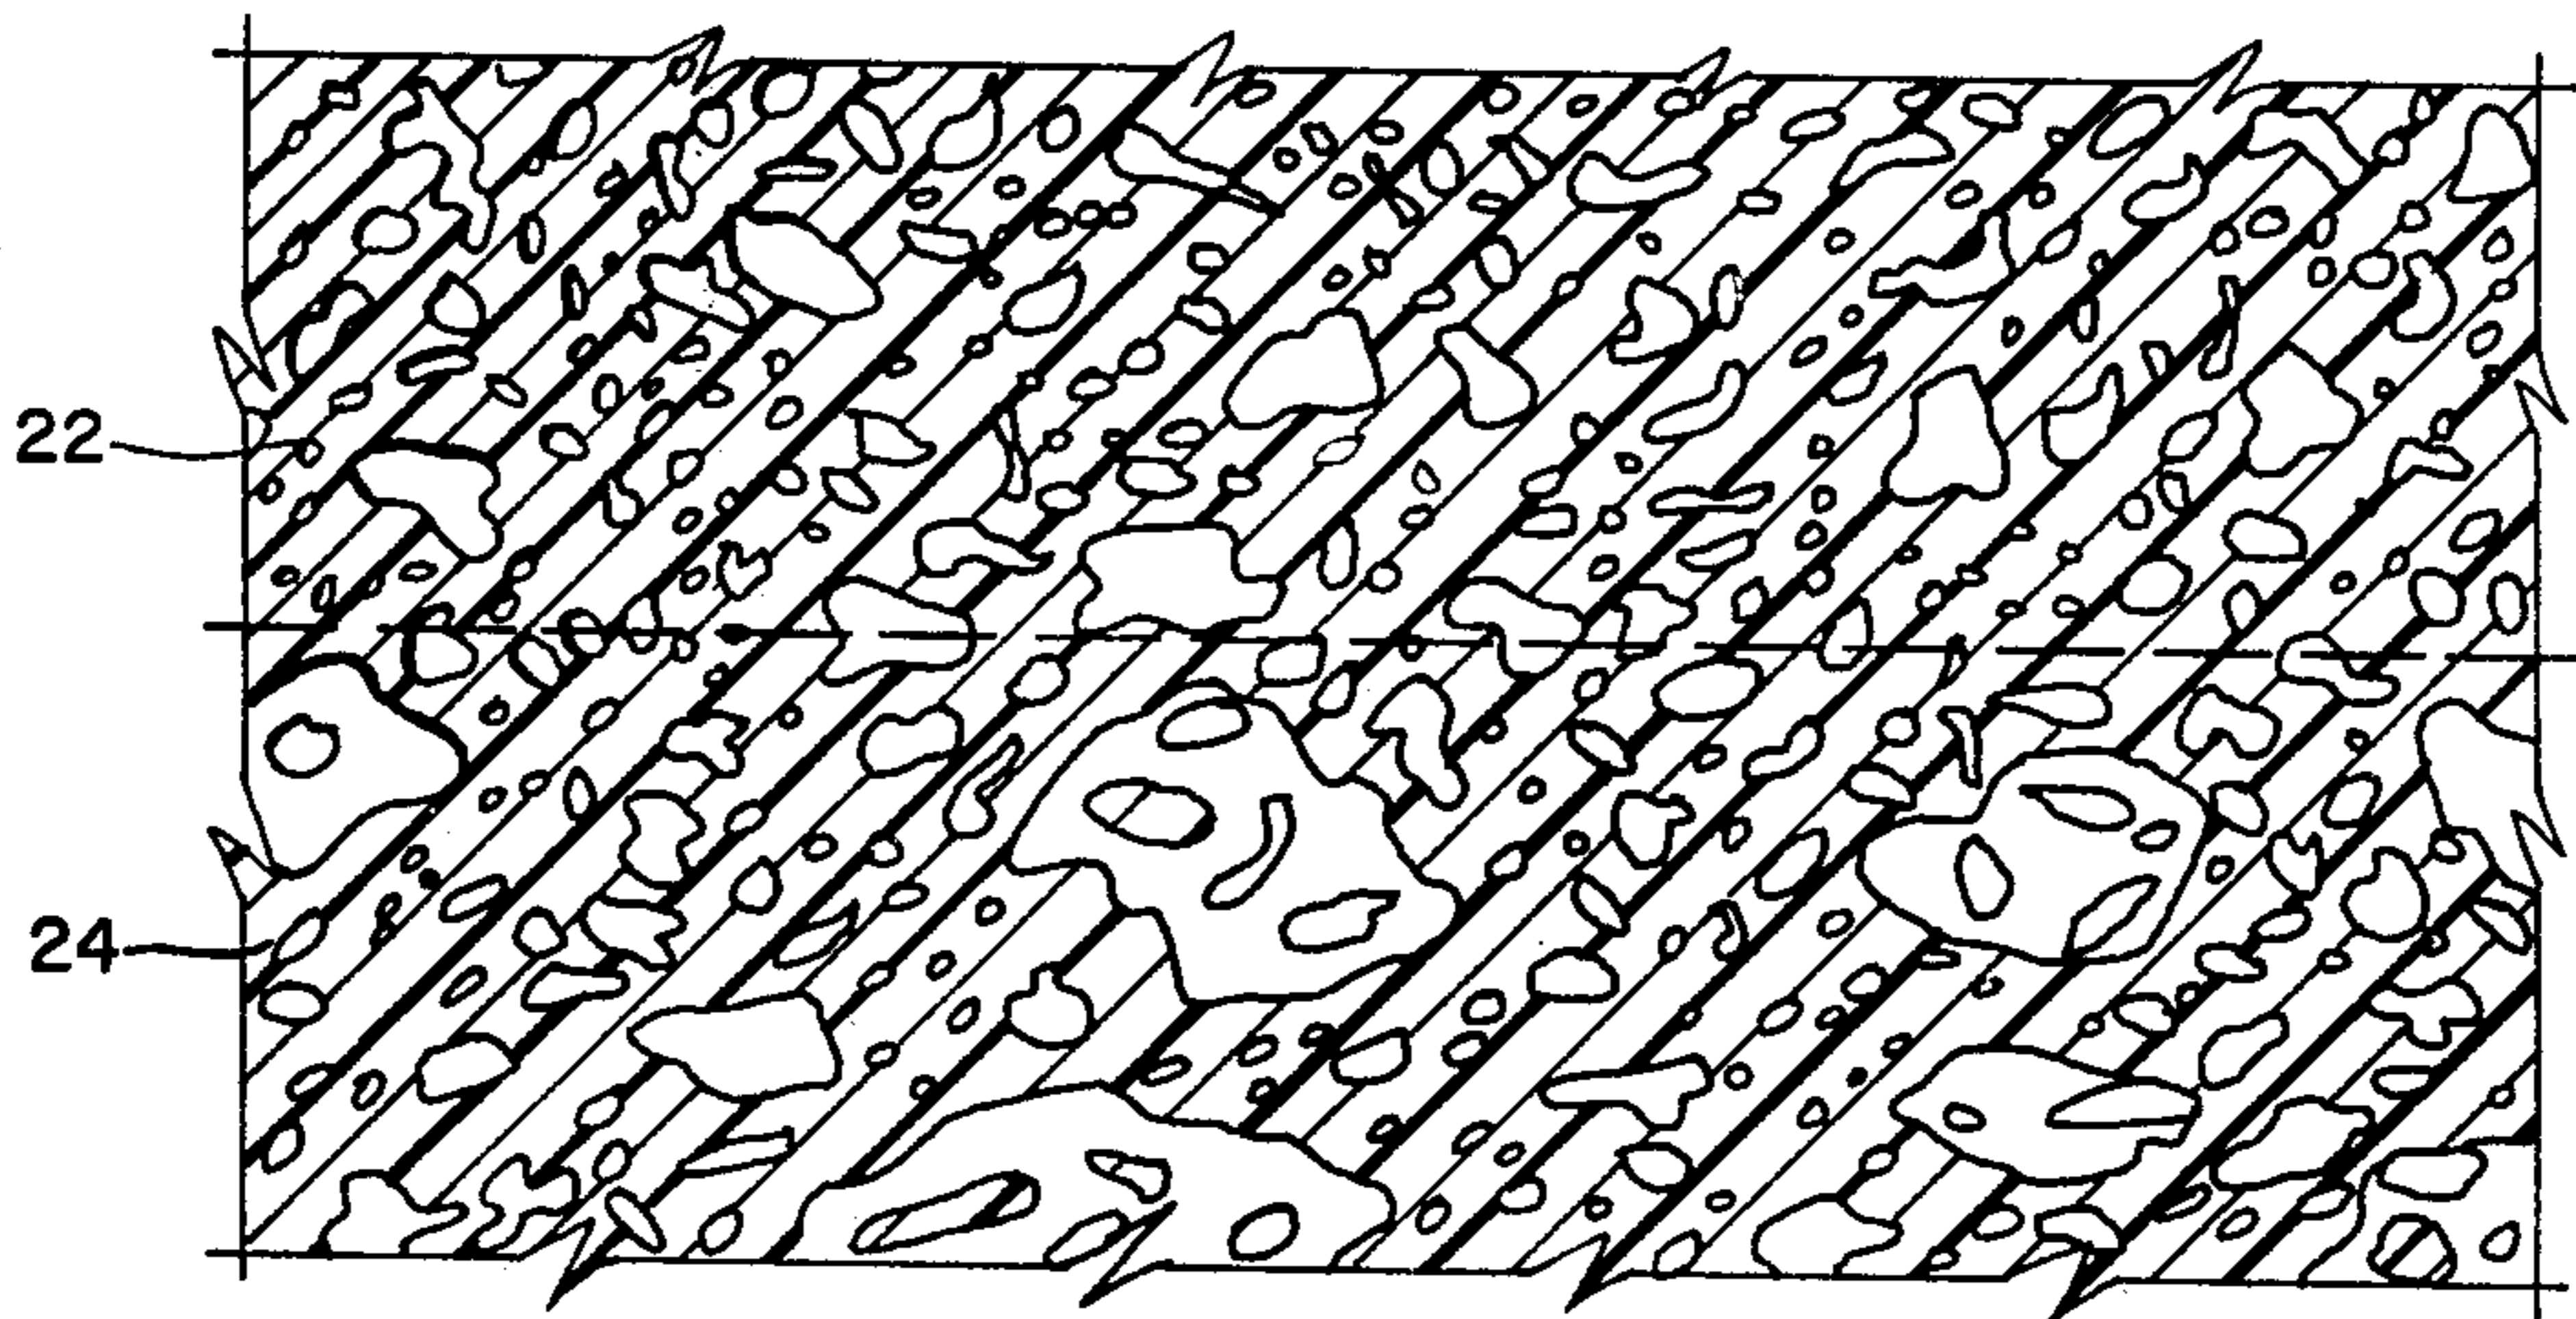 22
24